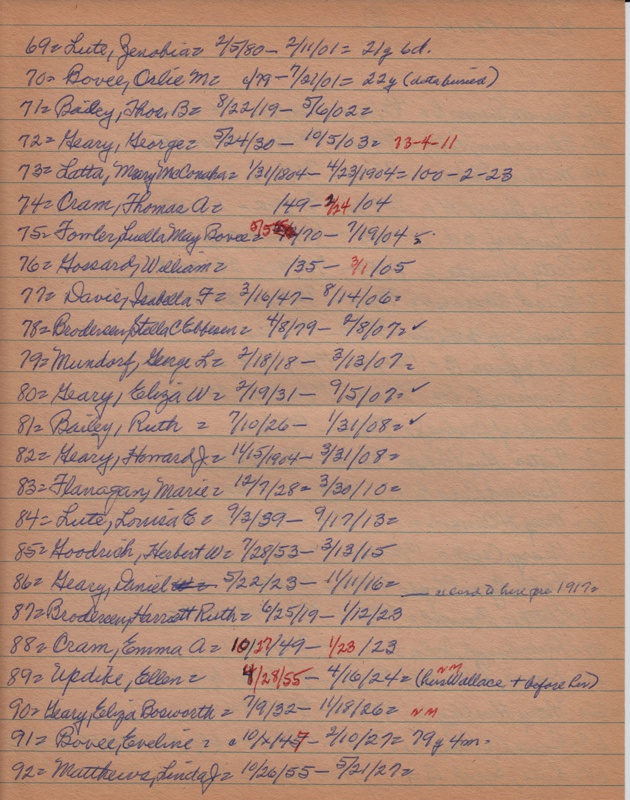 69= Lute, Zenobia= 2/5/80 – 2/11/01= 21y 6d.
70= Bovee, Orlie M= c/79 – 7/21/01= 22y (date buried)
71= Bailey, Thos. B= 8/22/19 – 5/6/02=
72= Geary, George= 5/24/30 – 10/5/03= 73-4-11
73= Latta, Mary McConaha= 1/31/1804 – 4/23/1904= 100-2-23
74= Cram, Thomas A= /49 – 2/24/04
75= Fowler, Luella May Bovee= 5/5/70 – 7/19/04
76= Gossard, William= /35 – 3/1/05
77= Davis, Isabella F= 3/16/47 – 8/14/06=
78= Brodersen, Stella C Ebbesen= 4/8/79 – 2/8/07= ✓
79= Mundorf, George L= 2/18/18 – 3/13/07=
80= Geary, Eliza W= 2/19/31 – 9/5/07= ✓
81= Bailey, Ruth = 7/10/26 – 1/31/08= ✓
82= Geary, Howard J= 11/15/1904 – 3/31/08=
83= Flanagan, Marie= 12/7/28= 3/30/10=
84= Lute, Louisa E= 9/3/39 – 9/17/13=
85= Goodrich, Herbert W= 7/28/53 – 3/13/15
86= Geary, Daniel = 5/22/23 – 11/11/16= — record to here pre 1917=
87= Brodersen, Harriett Ruth= 6/25/19 – 1/12/23
88= Cram, Emma A= 10/27/49 – 1/23/23
89= Updike, Ellen= 4/28/55 – 4/16/24= (hus Wallace + before his) NM
90= Geary, Eliza Bosworth= 7/9/32 – 11/18/26= NM
91= Bovee, Eveline= c 10/x/47 – 2/10/27= 79y 4m.
92= Matthews, Linda J= 10/26/55 – 5/21/27=